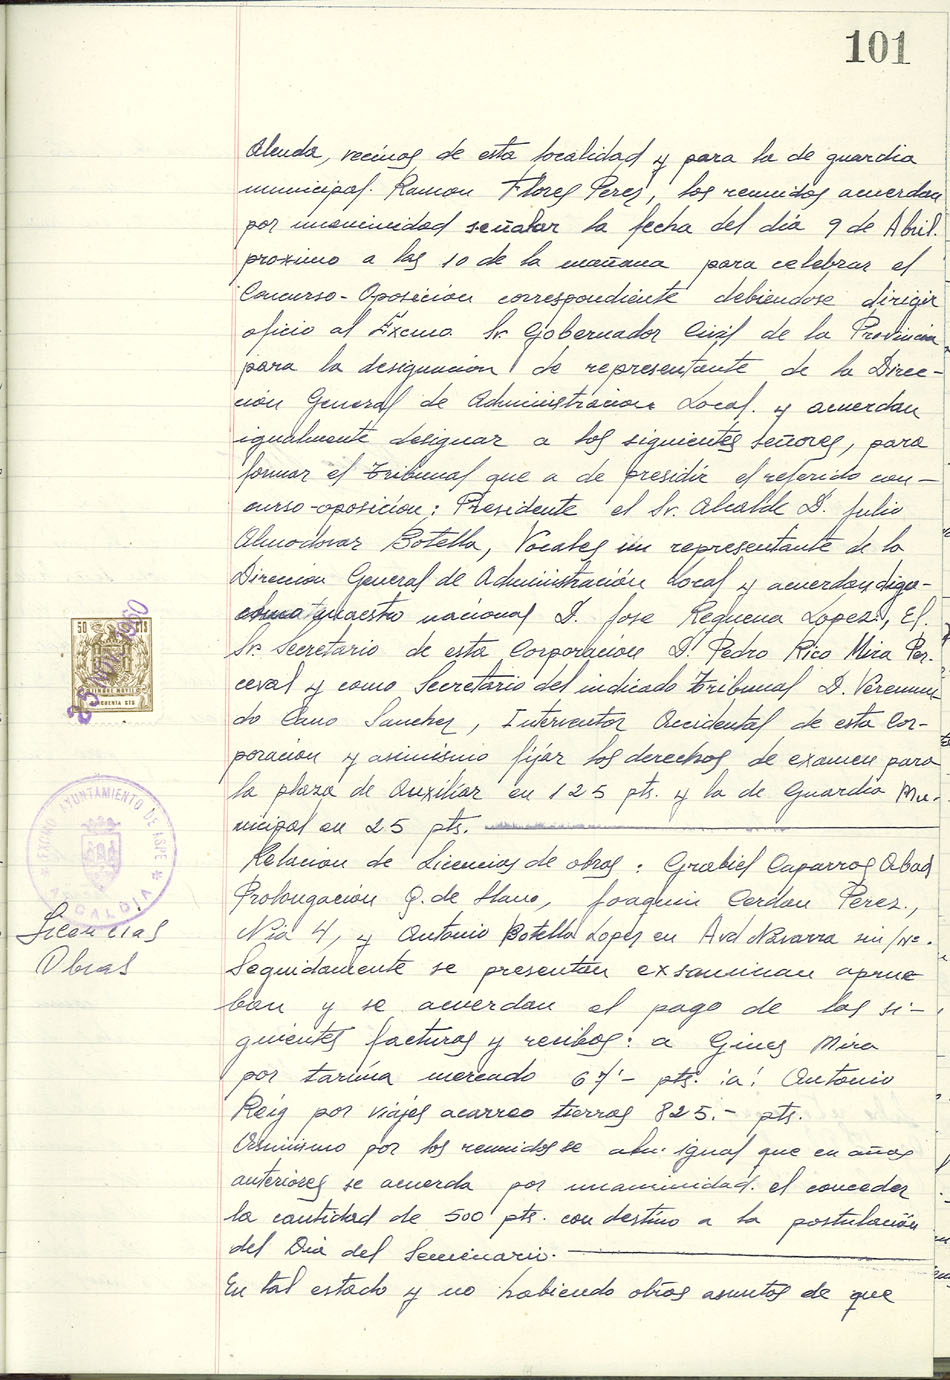 101
Alenda, vecinos de esta localidad y para la de guardia
municipal. Ramon Flores Perez, los reunidos acuerdan
por unanimidad señalar la fecha del dia 9 de Abril.
proximo a las 10 de la mañana para celebrar el
Concurso-Oposición correspondiente debiendose dirigir
oficio al Excmo. Sr. Gobernador Civil de la Provincia
para la designación de representante de la Direc-
ción General de Administracion Local. y acuerdan
igualmente designar a los siguientes señores, para
formar el tribunal que a de presidir el referido con-
curso-oposición: Presidente el Sr. Alcalde D. Julio
Almodovar Botella, Vocales un representante de la
Direccion General de Administración Local y acuerdan digo-
como maestro nacional D. Jose Requena Lopez, El.
Sr. Secretario de esta Corporación D. Pedro Rico Mira Per-
ceval y como Secretario del indicado tribunal D. Veremun-
do Cano Sanchez, Interventor Accidental de esta Cor-
poración y asimismo fijar los derechos de examen para
la plaza de Auxiliar en 125 pts. y la de Guardia Mu-
nicipal en 25 pts.
Relación de Licencias de obras: Grabiel Caparros Abad
Prolongación Q. de Llano, Joaquin Cerdan Perez.,
Nia 4, y Antonio Botella Lopez en Avd Navarra sin/nº.
Seguidamente se presentan exsaminan aprue
ban y se acuerdan el pago de las si-
guientes facturas y recibos: a Gines Mira
por tarima mercado 67'- pts. a Antonio
Reig por viajes acarreo tierras 825.- pts.
Asimismo por los reunidos se igual que en años
anteriores se acuerda por unanimidad. el conceder
la cantidad de 500 pts. con destino a la postulación
del Dia del Seminario.
En tal estado y no habiendo otros asuntos de que
50 CTS
TIMBRE MOVIL
CINCUENTA CTS
EXCMO AYUNTAMIENTO DE ASPE
ALCALDIA
Licencias
Obras